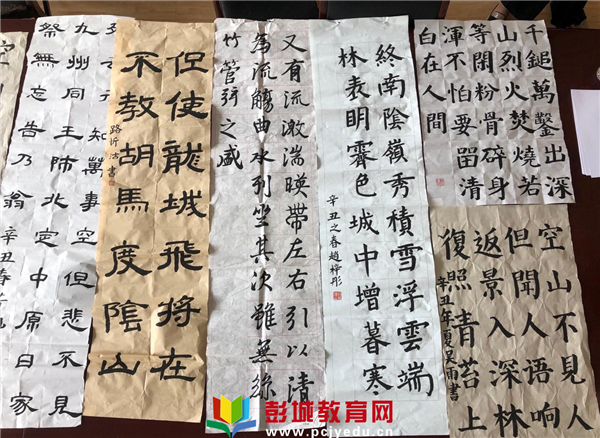 知萬事空但悲不見
九州同王師北定中原日家
祭無忘告乃翁 辛丑春
但使龍城飛將在
不教胡馬度陰山
路沂沽書
又有流激湍暎帶左右引以清
為流觴曲水列坐其次雖無絲
竹管弦之盛
終南陰嶺秀積雪浮雲端
林表明霽色城中增暮寒
辛丑之春趙梓彤
千鎚萬鑿出深
山烈火焚燒若
等閑粉骨碎身
渾不怕要留清
白在人間
空山不見人
但聞人语响
返景入深林
復照青苔上
辛丑年夏吴雨書
彭城教育网
www.pcjyedu.cn